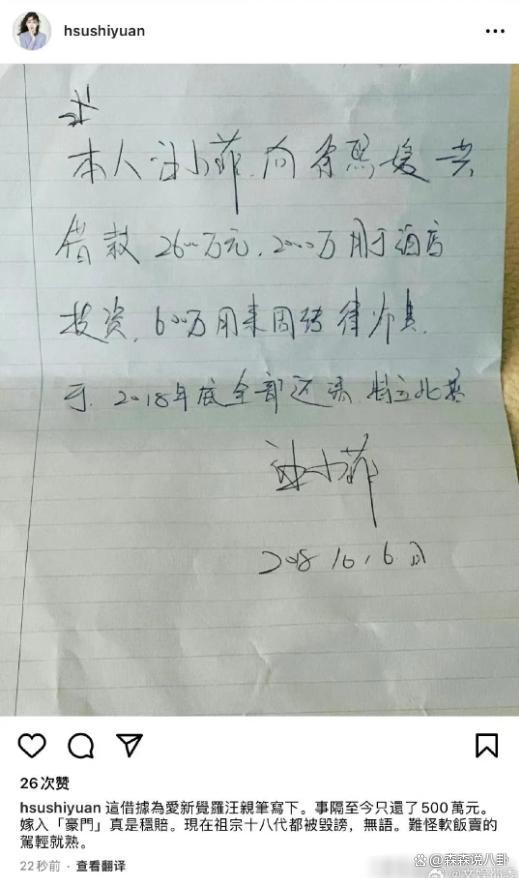 hsushiyuan
本人汪小菲向徐熙媛共
借款2600万元，2000万用于酒店
投资，600万用来周转
于2018年底全部还清，特立此据
汪小菲
26次赞
hsushiyuan 這借據為愛新覺羅汪親筆寫下。事隔至今只還了500萬元。
嫁入「豪門」真是穩賠。現在祖宗十八代都被毀謗，無語。難怪軟飯賣的
駕輕就熟。
22秒前 · 查看翻译
@森森说八卦